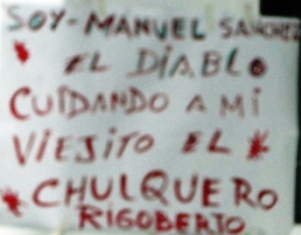 SOY-MANUEL SANCHEZ
EL DIABLO
CUIDANDO A MI
VIEJITO EL
CHULQUERO
RIGOBERTO